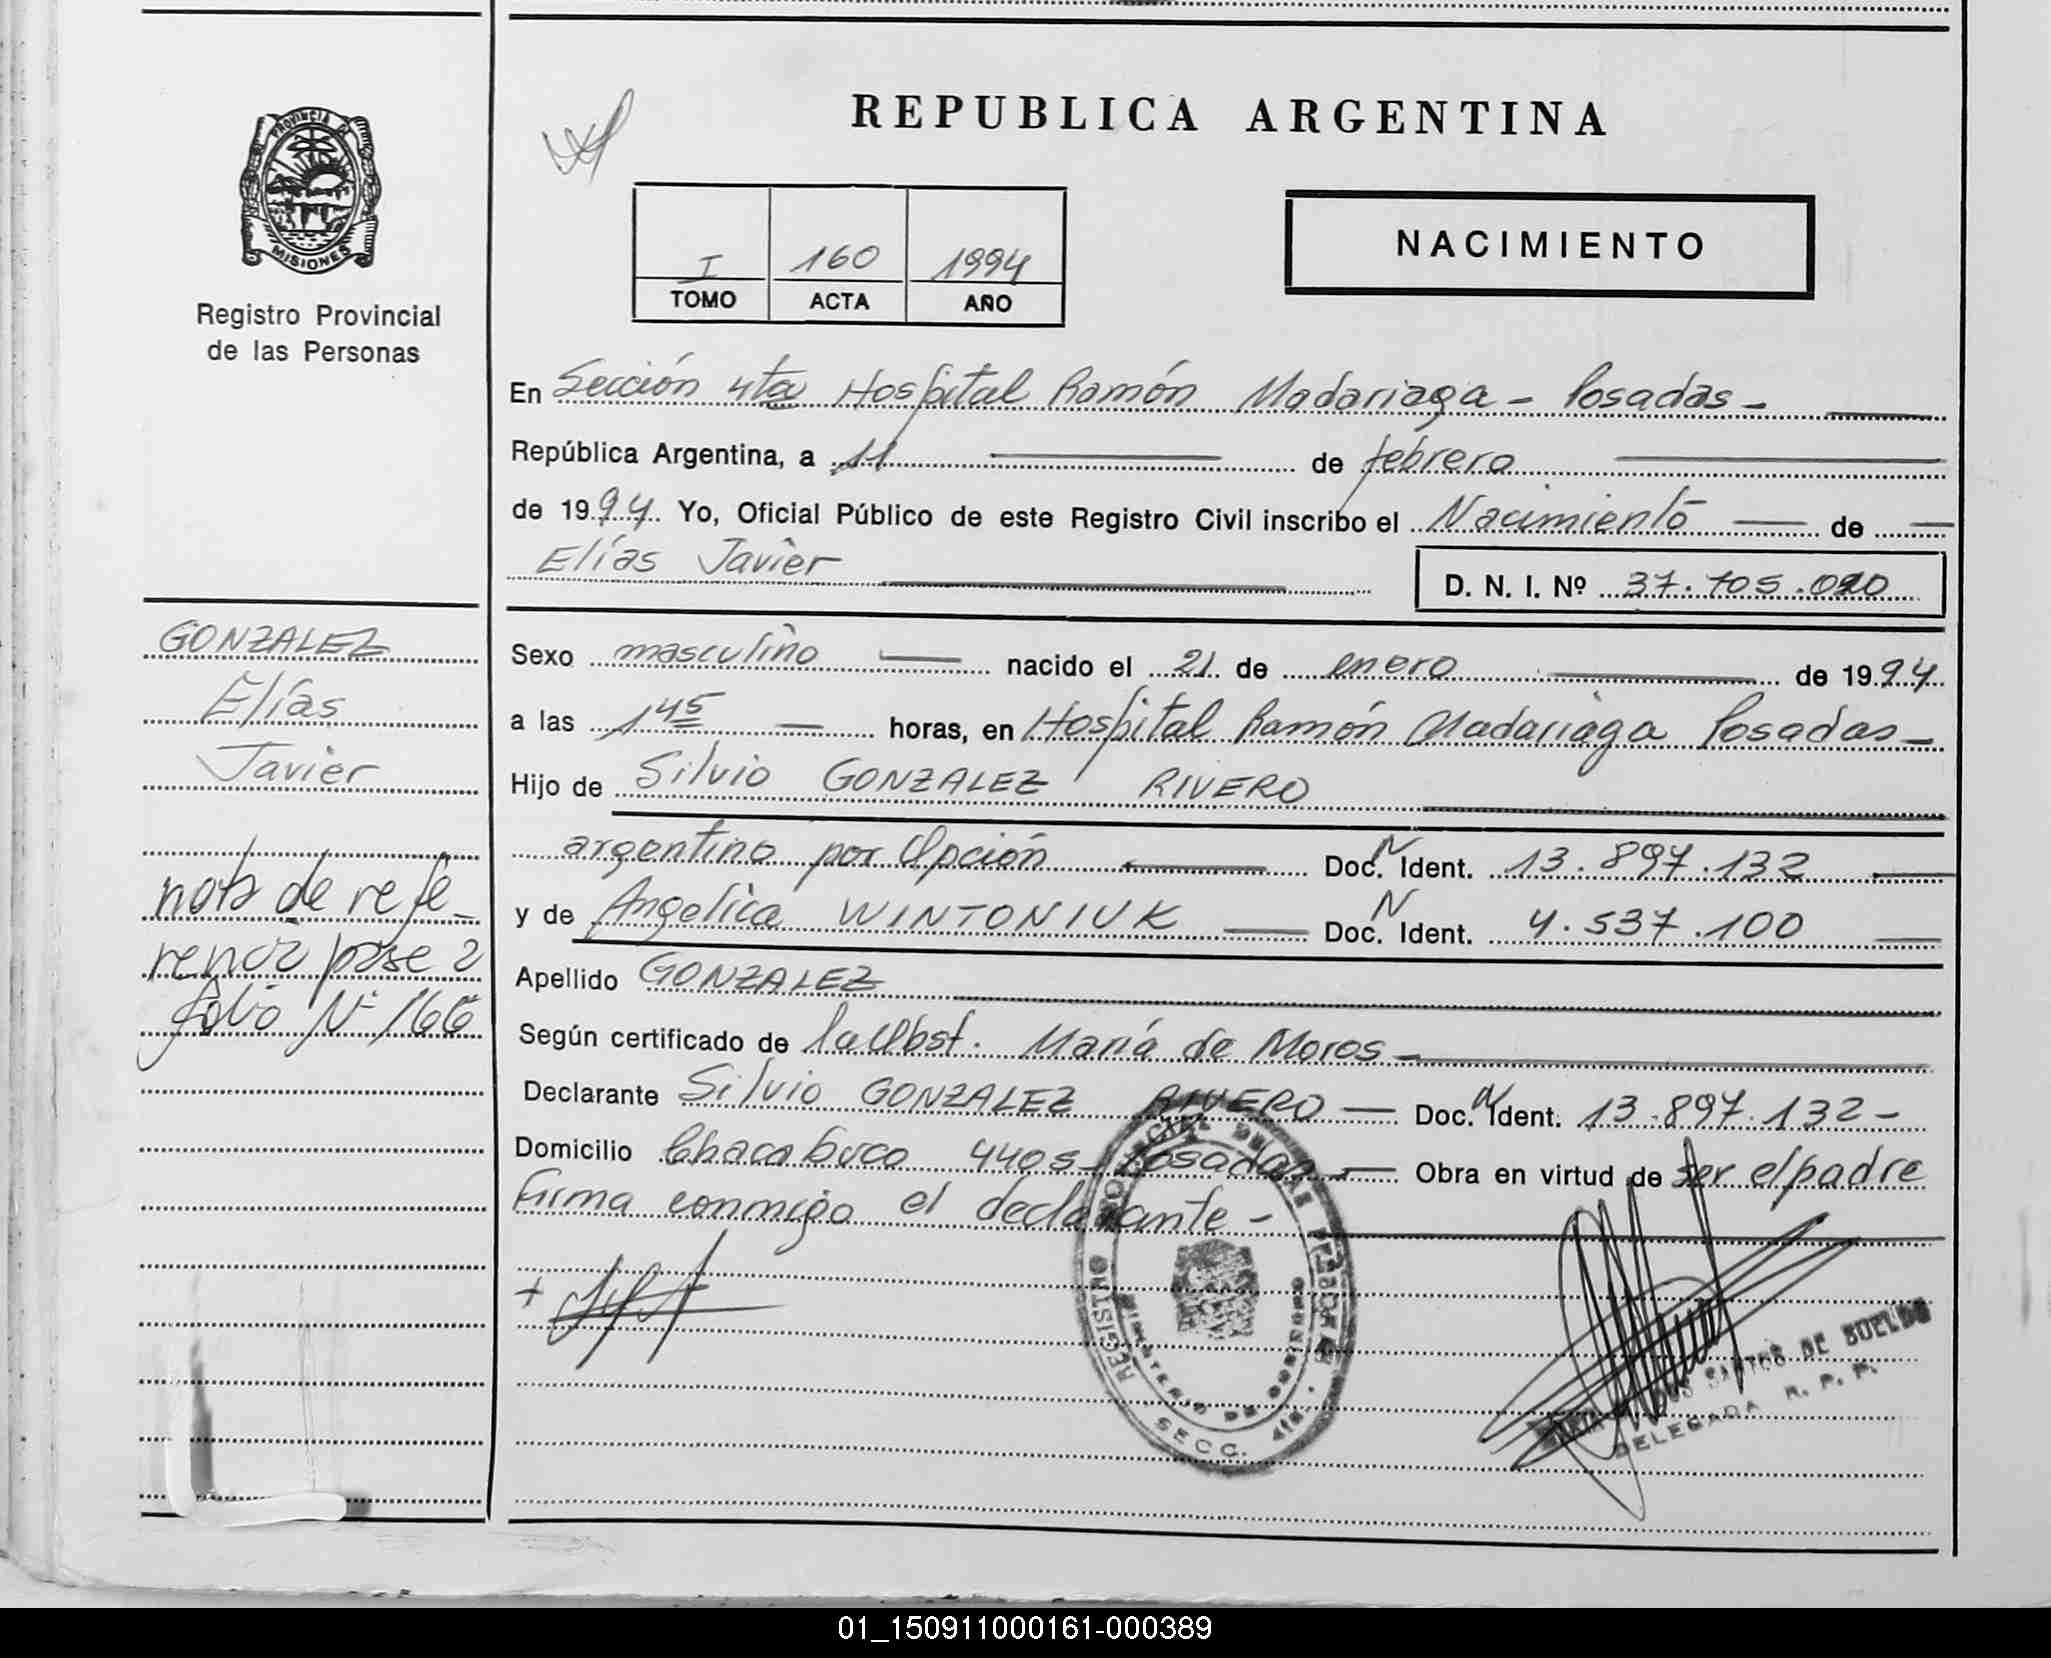 REPUBLICA ARGENTINA
PROVINCIA D
MISIONES
Registro Provincial
de las Personas
I 160 1994
TOMO ACTA AÑO
NACIMIENTO
En Sección 4ta Hospital Ramón Madariaga - Posadas -
República Argentina, a 11 de febrero
de 1994 Yo, Oficial Público de este Registro Civil inscribo el Nacimiento de
Elías Javier
D. N. I. Nº 37.705.010
GONZALEZ
Elías
Javier
nota de refe-
rencia pase a
folio Nº 166
Sexo masculino nacido el 21 de enero de 1994
a las 1 45 horas, en Hospital Ramón Madariaga Posadas -
Hijo de Silvio GONZALEZ RIVERO
argentino por Opción Doc. N Ident. 13.897.132
y de Angelica WINTONIUK Doc. N Ident. 4.537.100
Apellido GONZALEZ
Según certificado de la Obst. María de Moros -
Declarante Silvio GONZALEZ RIVERO Doc. N Ident. 13.897.132 -
Domicilio Chacabuco 4405 - Posadas Obra en virtud de ser el padre
Firma conmigo el declarante -
REGISTRO DE LAS PERSONAS
MINISTERIO DE GOBIERNO
SECC. 4ta.
SANTOS DE SUELDO
DELEGADA R. P. P.
01_150911000161-000389